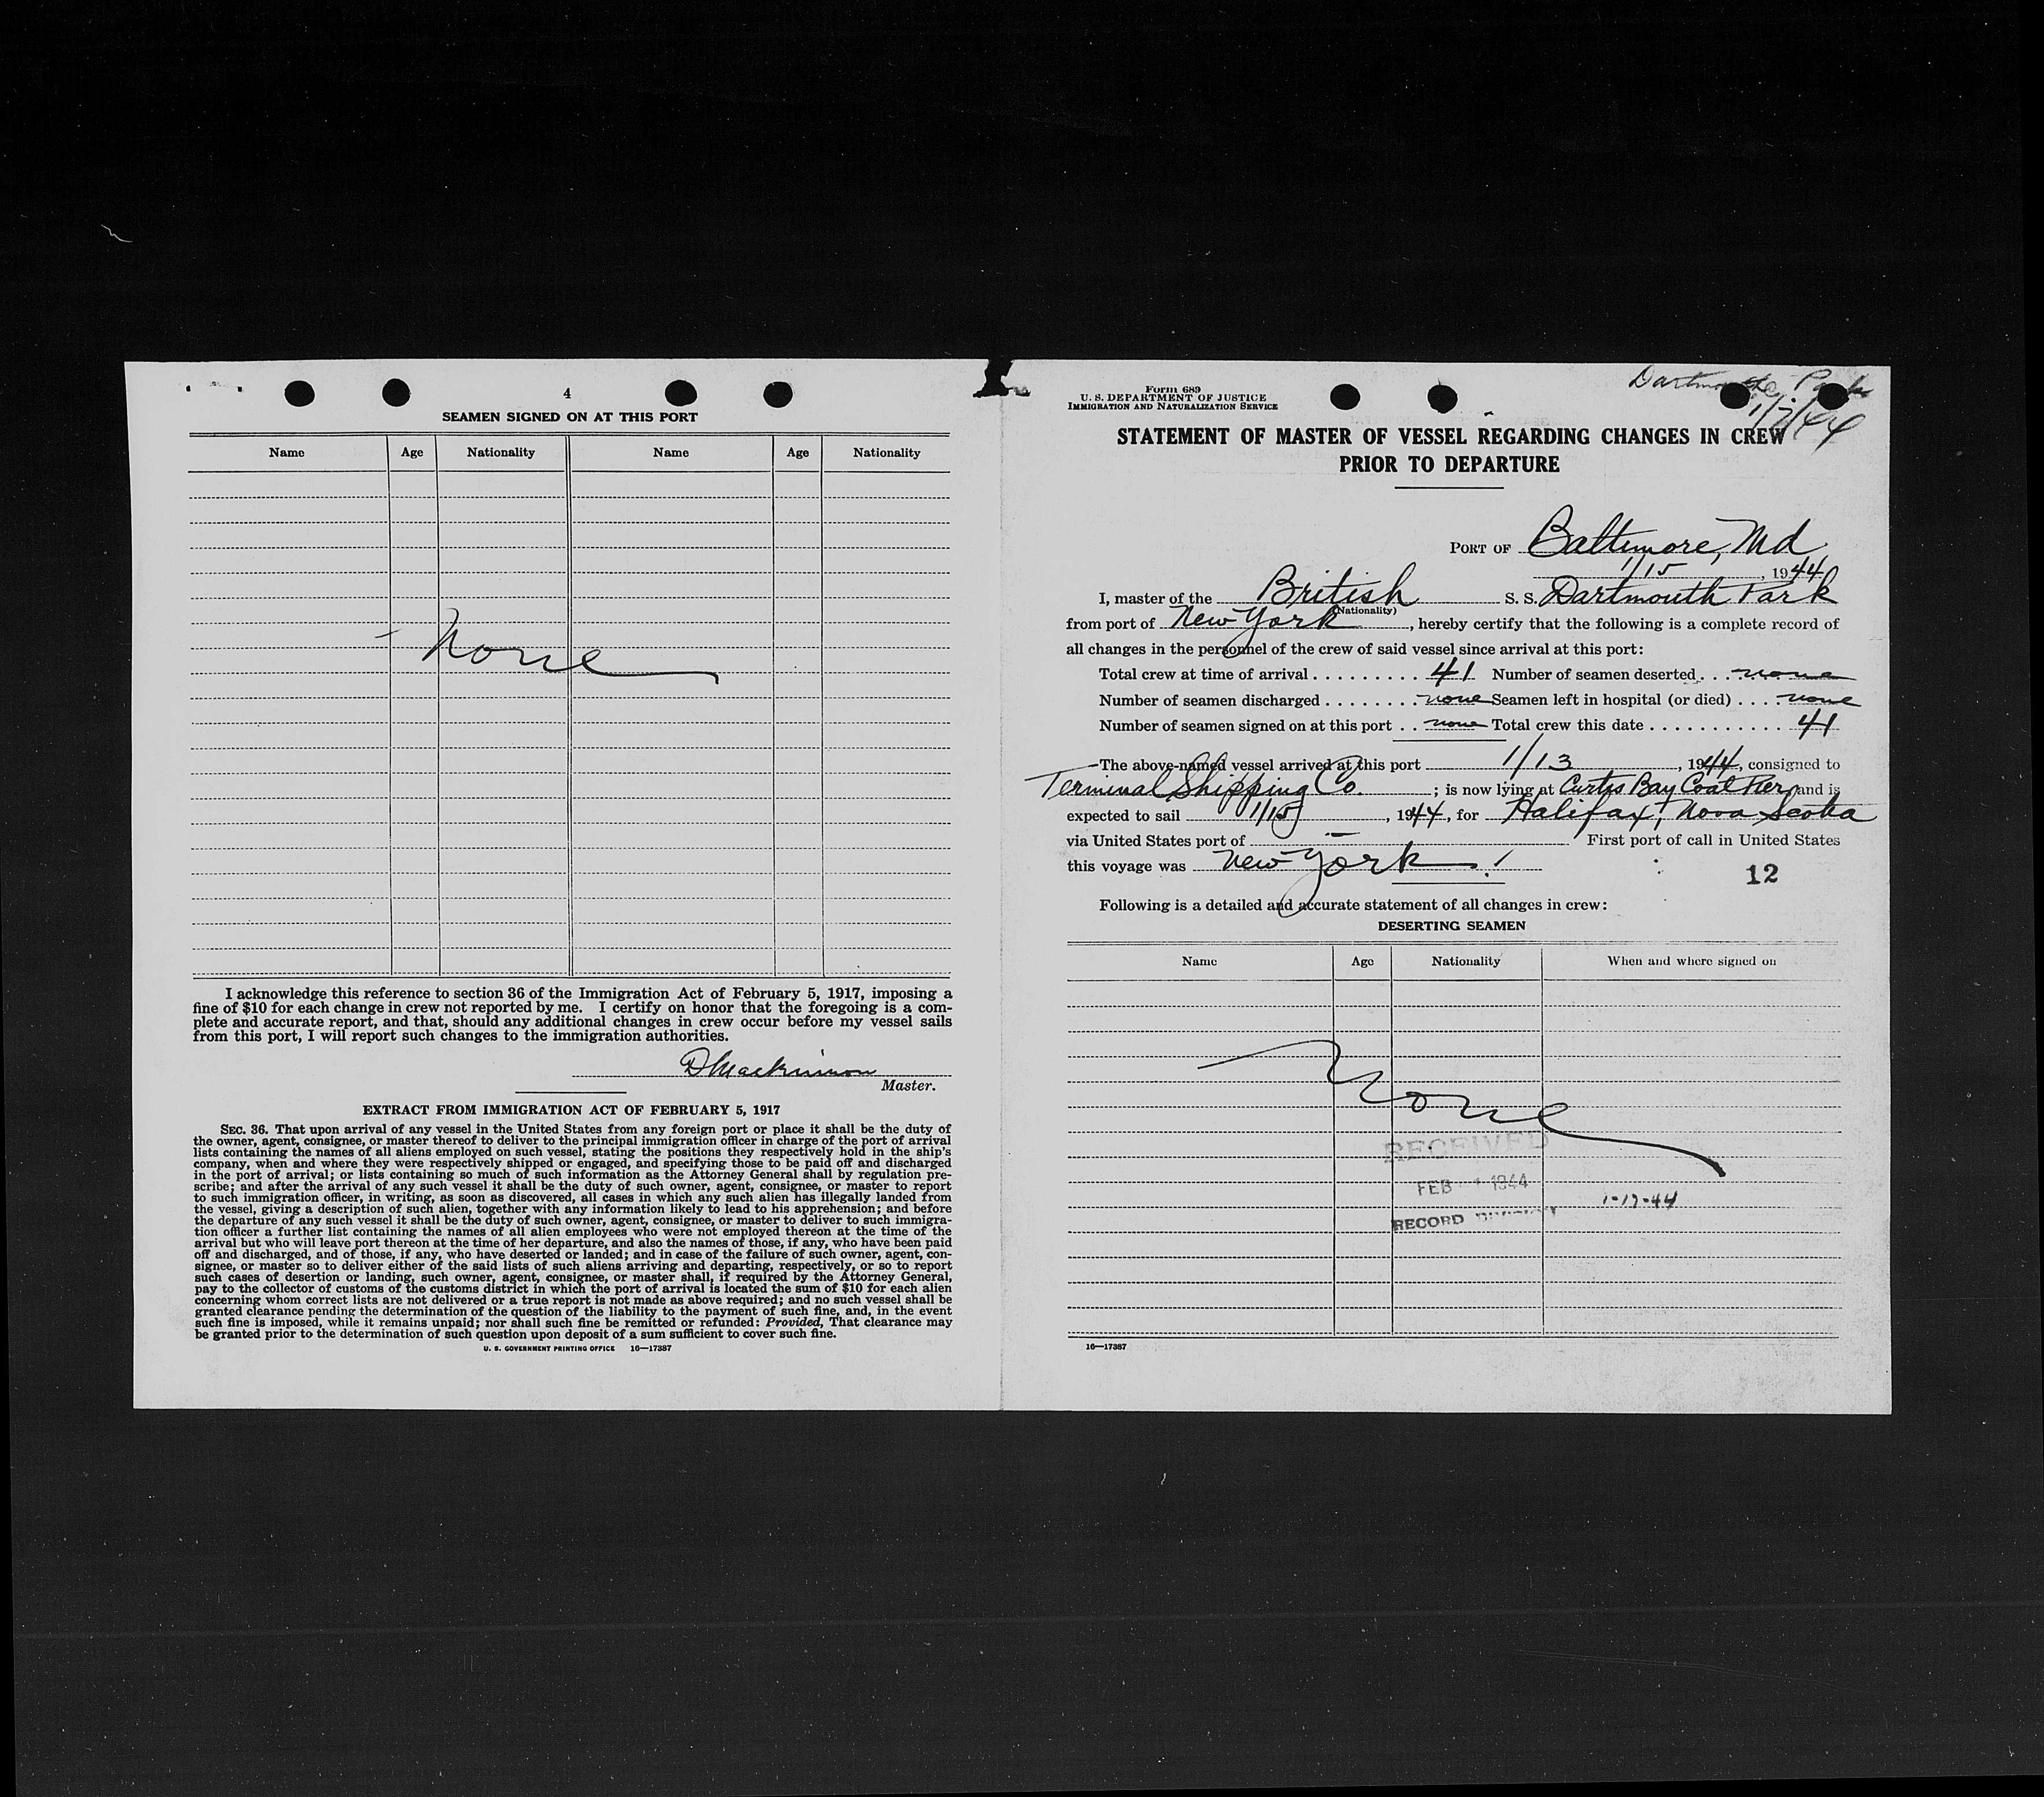 4
SEAMEN SIGNED ON AT THIS PORT
Name Age Nationality Name Age Nationality
None
I acknowledge this reference to section 36 of the Immigration Act of February 5, 1917, imposing a
fine of $10 for each change in crew not reported by me. I certify on honor that the foregoing is a com-
plete and accurate report, and that, should any additional changes in crew occur before my vessel sails
from this port, I will report such changes to the immigration authorities.
DMackinnon
Master.
EXTRACT FROM IMMIGRATION ACT OF FEBRUARY 5, 1917
SEC. 36. That upon arrival of any vessel in the United States from any foreign port or place it shall be the duty of
the owner, agent, consignee, or master thereof to deliver to the principal immigration officer in charge of the port of arrival
lists containing the names of all aliens employed on such vessel, stating the positions they respectively hold in the ship's
company, when and where they were respectively shipped or engaged, and specifying those to be paid off and discharged
in the port of arrival; or lists containing so much of such information as the Attorney General shall by regulation pre-
scribe; and after the arrival of any such vessel it shall be the duty of such owner, agent, consignee, or master to report
to such immigration officer, in writing, as soon as discovered, all cases in which any such alien has illegally landed from
the vessel, giving a description of such alien, together with any information likely to lead to his apprehension; and before
the departure of any such vessel it shall be the duty of such owner, agent, consignee, or master to deliver to such immigra-
tion officer a further list containing the names of all alien employees who were not employed thereon at the time of the
arrival but who will leave port thereon at the time of her departure, and also the names of those, if any, who have been paid
off and discharged, and of those, if any, who have deserted or landed; and in case of the failure of such owner, agent, con-
signee, or master so to deliver either of the said lists of such aliens arriving and departing, respectively, or so to report
such cases of desertion or landing, such owner, agent, consignee, or master shall, if required by the Attorney General,
pay to the collector of customs of the customs district in which the port of arrival is located the sum of $10 for each alien
concerning whom correct lists are not delivered or a true report is not made as above required; and no such vessel shall be
granted clearance pending the determination of the question of the liability to the payment of such fine, and, in the event
such fine is imposed, while it remains unpaid; nor shall such fine be remitted or refunded: Provided, That clearance may
be granted prior to the determination of such question upon deposit of a sum sufficient to cover such fine.
U. S. GOVERNMENT PRINTING OFFICE 16—17387
Form 689
U. S. DEPARTMENT OF JUSTICE
IMMIGRATION AND NATURALIZATION SERVICE
Dartmouth Park
1/7/44
STATEMENT OF MASTER OF VESSEL REGARDING CHANGES IN CREW
PRIOR TO DEPARTURE
PORT OF Baltimore, Md
1/15, 1944
I, master of the British S. S. Dartmouth Park
(Nationality)
from port of New York, hereby certify that the following is a complete record of
all changes in the personnel of the crew of said vessel since arrival at this port:
Total crew at time of arrival ......... 41 Number of seamen deserted ... none
Number of seamen discharged ........ none Seamen left in hospital (or died) .... none
Number of seamen signed on at this port .. none Total crew this date ............ 41
The above-named vessel arrived at this port 1/13, 1944, consigned to
Terminal Shipping Co. ; is now lying at Curtis Bay Coal Pier and is
expected to sail 1/15, 1944, for Halifax, Nova Scotia
via United States port of — First port of call in United States
this voyage was New York.
12
Following is a detailed and accurate statement of all changes in crew:
DESERTING SEAMEN
Name Age Nationality When and where signed on
None
RECEIVED
FEB 1 1944
1-17-44
RECORD
16—17387